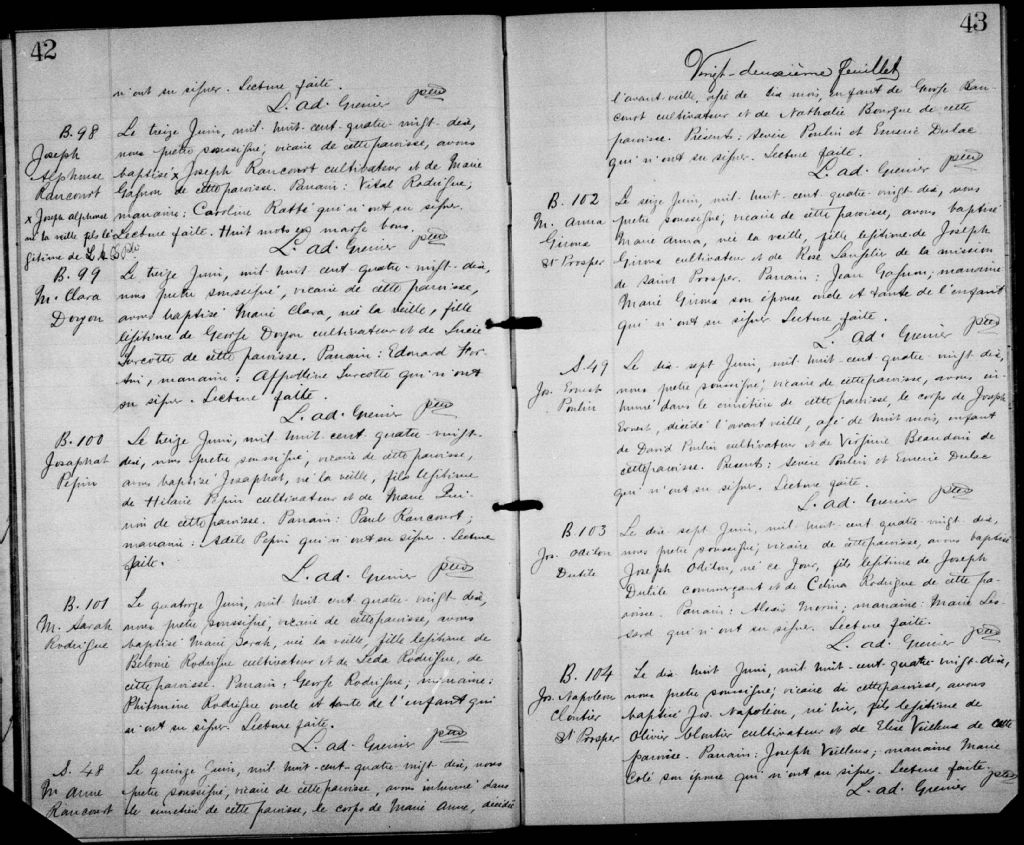 42
n'ont su signer. Lecture faite.
L. ad. Grenier ptre
B. 98
Joseph
Alphonse
Rancourt
x Joseph alphonse
né la veille fils lé
gitime de L.A.G. Ptre
Le treize Juin, mil huit cent quatre-vingt-dix,
nous prêtre soussigné, vicaire de cette paroisse, avons
baptisé x Joseph Rancourt cultivateur et de Marie
Gagnon de cette paroisse. Parrain: Vital Rodrigue;
marraine: Caroline Ratté qui n'ont su signer.
Lecture faite. Huit mots en marge bons.
L. ad. Grenier ptre
B. 99
M. Clara
Doyon
Le treize Juin, mil huit cent quatre-vingt-dix,
nous prêtre soussigné, vicaire de cette paroisse,
avons baptisé Marie Clara, née la veille, fille
légitime de George Doyon cultivateur et de Lucie
Turcotte de cette paroisse. Parrain: Edouard For-
tin, marraine: Appolline Turcotte qui n'ont
su signer. Lecture faite.
L. ad. Grenier ptre
B. 100
Josaphat
Pepin
Le treize Juin, mil huit cent quatre-vingt-
dix, nous prêtre soussigné, vicaire de cette paroisse,
avons baptisé Josaphat, né la veille, fils légitime
de Hilaire Pepin cultivateur et de Marie Qui-
rion de cette paroisse. Parrain: Paul Rancourt;
marraine: Adèle Pepin qui n'ont su signer. Lecture
faite.
L. ad. Grenier ptre
B. 101
M. Sarah
Rodrigue
Le quatorze Juin, mil huit cent quatre-vingt-dix,
nous prêtre soussigné, vicaire de cette paroisse, avons
baptisé Marie Sarah, née la veille, fille légitime de
Bélonie Rodrigue cultivateur et de Léda Rodrigue, de
cette paroisse. Parrain, George Rodrigue; marraine:
Philomène Rodrigue oncle et tante de l'enfant qui
n'ont su signer. Lecture faite.
L. ad. Grenier ptre
S. 48
M. Anne
Rancourt
Le quinze Juin, mil huit-cent-quatre-vingt dix, nous
prêtre soussigné, vicaire de cette paroisse, avons inhumé dans
le cimetière de cette paroisse, le corps de Marie Anne, décédée
43
Vingt-deuxième feuillet
l'avant-veille, agée de six mois, enfant de George Ran-
court cultivateur et de Nathalie Bourque de cette
paroisse. Présents: Sévère Poulin et Emeric Dulac
qui n'ont su signer. Lecture faite.
L. ad. Grenier ptre
B. 102
M. Anna
Giroux
St Prosper
Le seize Juin, mil huit cent quatre-vingt-dix, nous
prêtre soussigné, vicaire de cette paroisse, avons baptisé
Marie Anna, née la veille, fille légitime de Joseph
Giroux cultivateur et de Rose Lauplier de la mission
de saint Prosper. Parrain: Jean Gagnon; marraine
Marie Giroux son épouse oncle et tante de l'enfant
qui n'ont su signer Lecture faite.
L. Ad. Grenier ptre
S. 49
Jos. Ernest
Poulin
Le dix-sept Juin, mil huit-cent-quatre-vingt-dix,
nous prêtre soussigné; vicaire de cette paroisse, avons in-
humé dans le cimétière de cette paroisse, le corps de Joseph
Ernest, décédé l'avant veille, agé de huit mois, enfant
de David Poulin cultivateur et de Virginie Beaudoin de
cette paroisse. Présents: Sévère Poulin et Emeric Dulac
qui n'ont su signer. Lecture faite.
L. ad. Grenier ptre
B. 103
Jos. Odilon
Dutile
Le dix sept Juin, mil huit-cent-quatre-vingt-dix,
nous prêtre soussigné; vicaire de cette paroisse, avons baptisé
Joseph Odilon, né ce Jour, fils légitime de Joseph
Dutile commerçant et de Célina Rodrigue de cette pa-
roisse. Parrain: Alexis Morin; marraine: Marie Les-
sard qui n'ont su signer. Lecture faite.
L. ad. Grenier ptre
B. 104
Jos. Napoléon
Cloutier
St Prosper
Le dix huit Juin, mil huit-cent-quatre-vingt-dix,
nous prêtre soussigné; vicaire de cette paroisse, avons
baptisé Jos. Napoléon, né hier, fils légitime de
Olivier Cloutier cultivateur et de Elise Veilleux de cette
paroisse. Parrain: Joseph Veilleux; marraine Marie
Coté son épouse qui n'ont su signer. Lecture faite.
L. ad. Grenier ptre